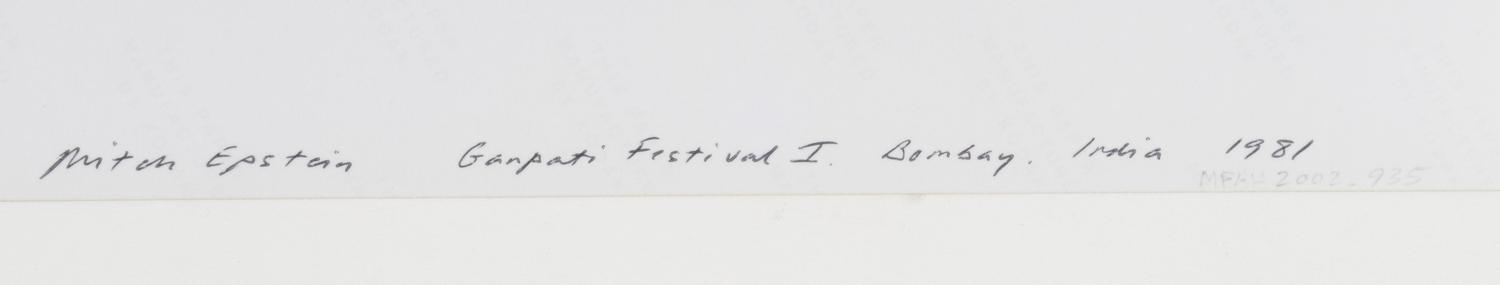 Mitch Epstein Ganpati Festival I. Bombay. India 1981
MFAH 2002.935